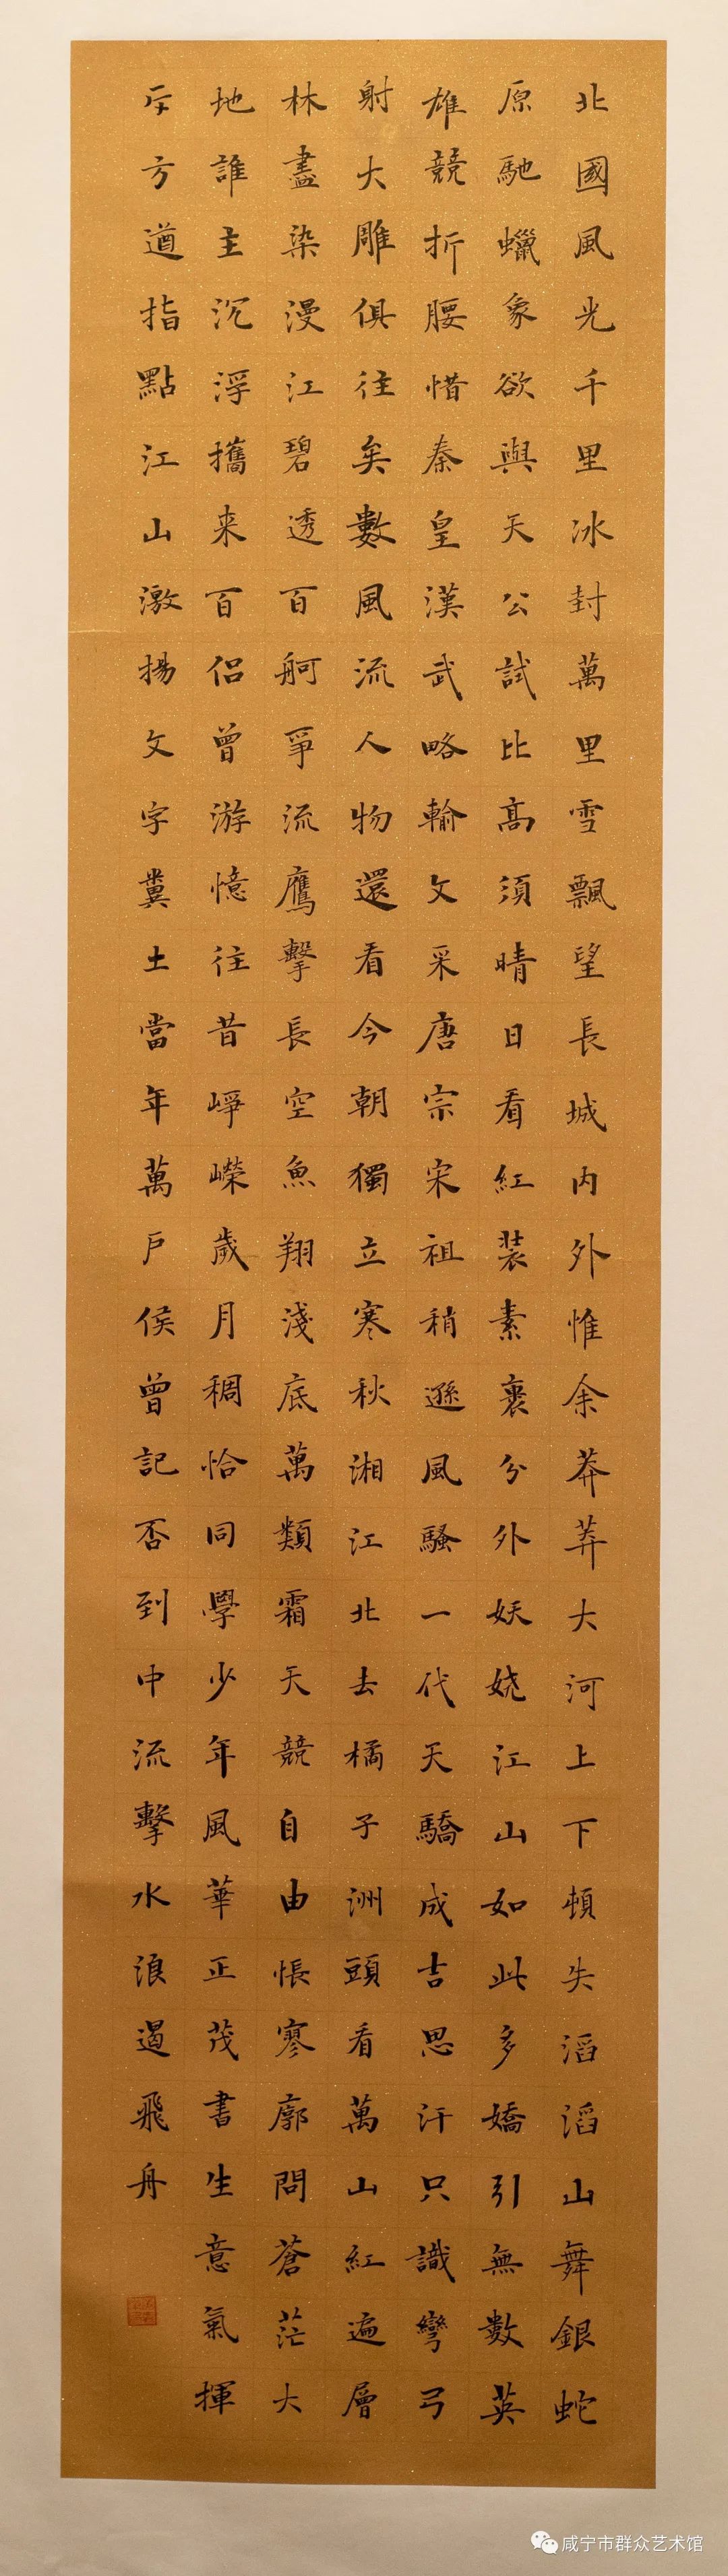 北國風光千里冰封萬里雪飄望長城内外惟余莽莽大河上下頓失滔滔山舞銀蛇
原馳蠟象欲與天公試比高須晴日看紅裝素裹分外妖娆江山如此多嬌引無數英
雄競折腰惜秦皇漢武略輸文采唐宗宋祖稍遜風騷一代天驕成吉思汗只識彎弓
射大雕俱往矣數風流人物還看今朝獨立寒秋湘江北去橘子洲頭看萬山紅遍層
林盡染漫江碧透百舸爭流鷹擊長空魚翔淺底萬類霜天競自由悵寥廓問蒼茫大
地誰主沉浮攜来百侶曾游憶往昔崢嶸歲月稠恰同學少年風華正茂書生意氣揮
斥方遒指點江山激揚文字糞土當年萬戶侯曾記否到中流擊水浪遏飛舟
咸宁市群众艺术馆